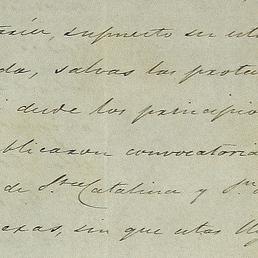 supuesto su
da, salvas las
desde los principio
blicaron convocatoria
de Sta Catalina y Sn
exas, sin que